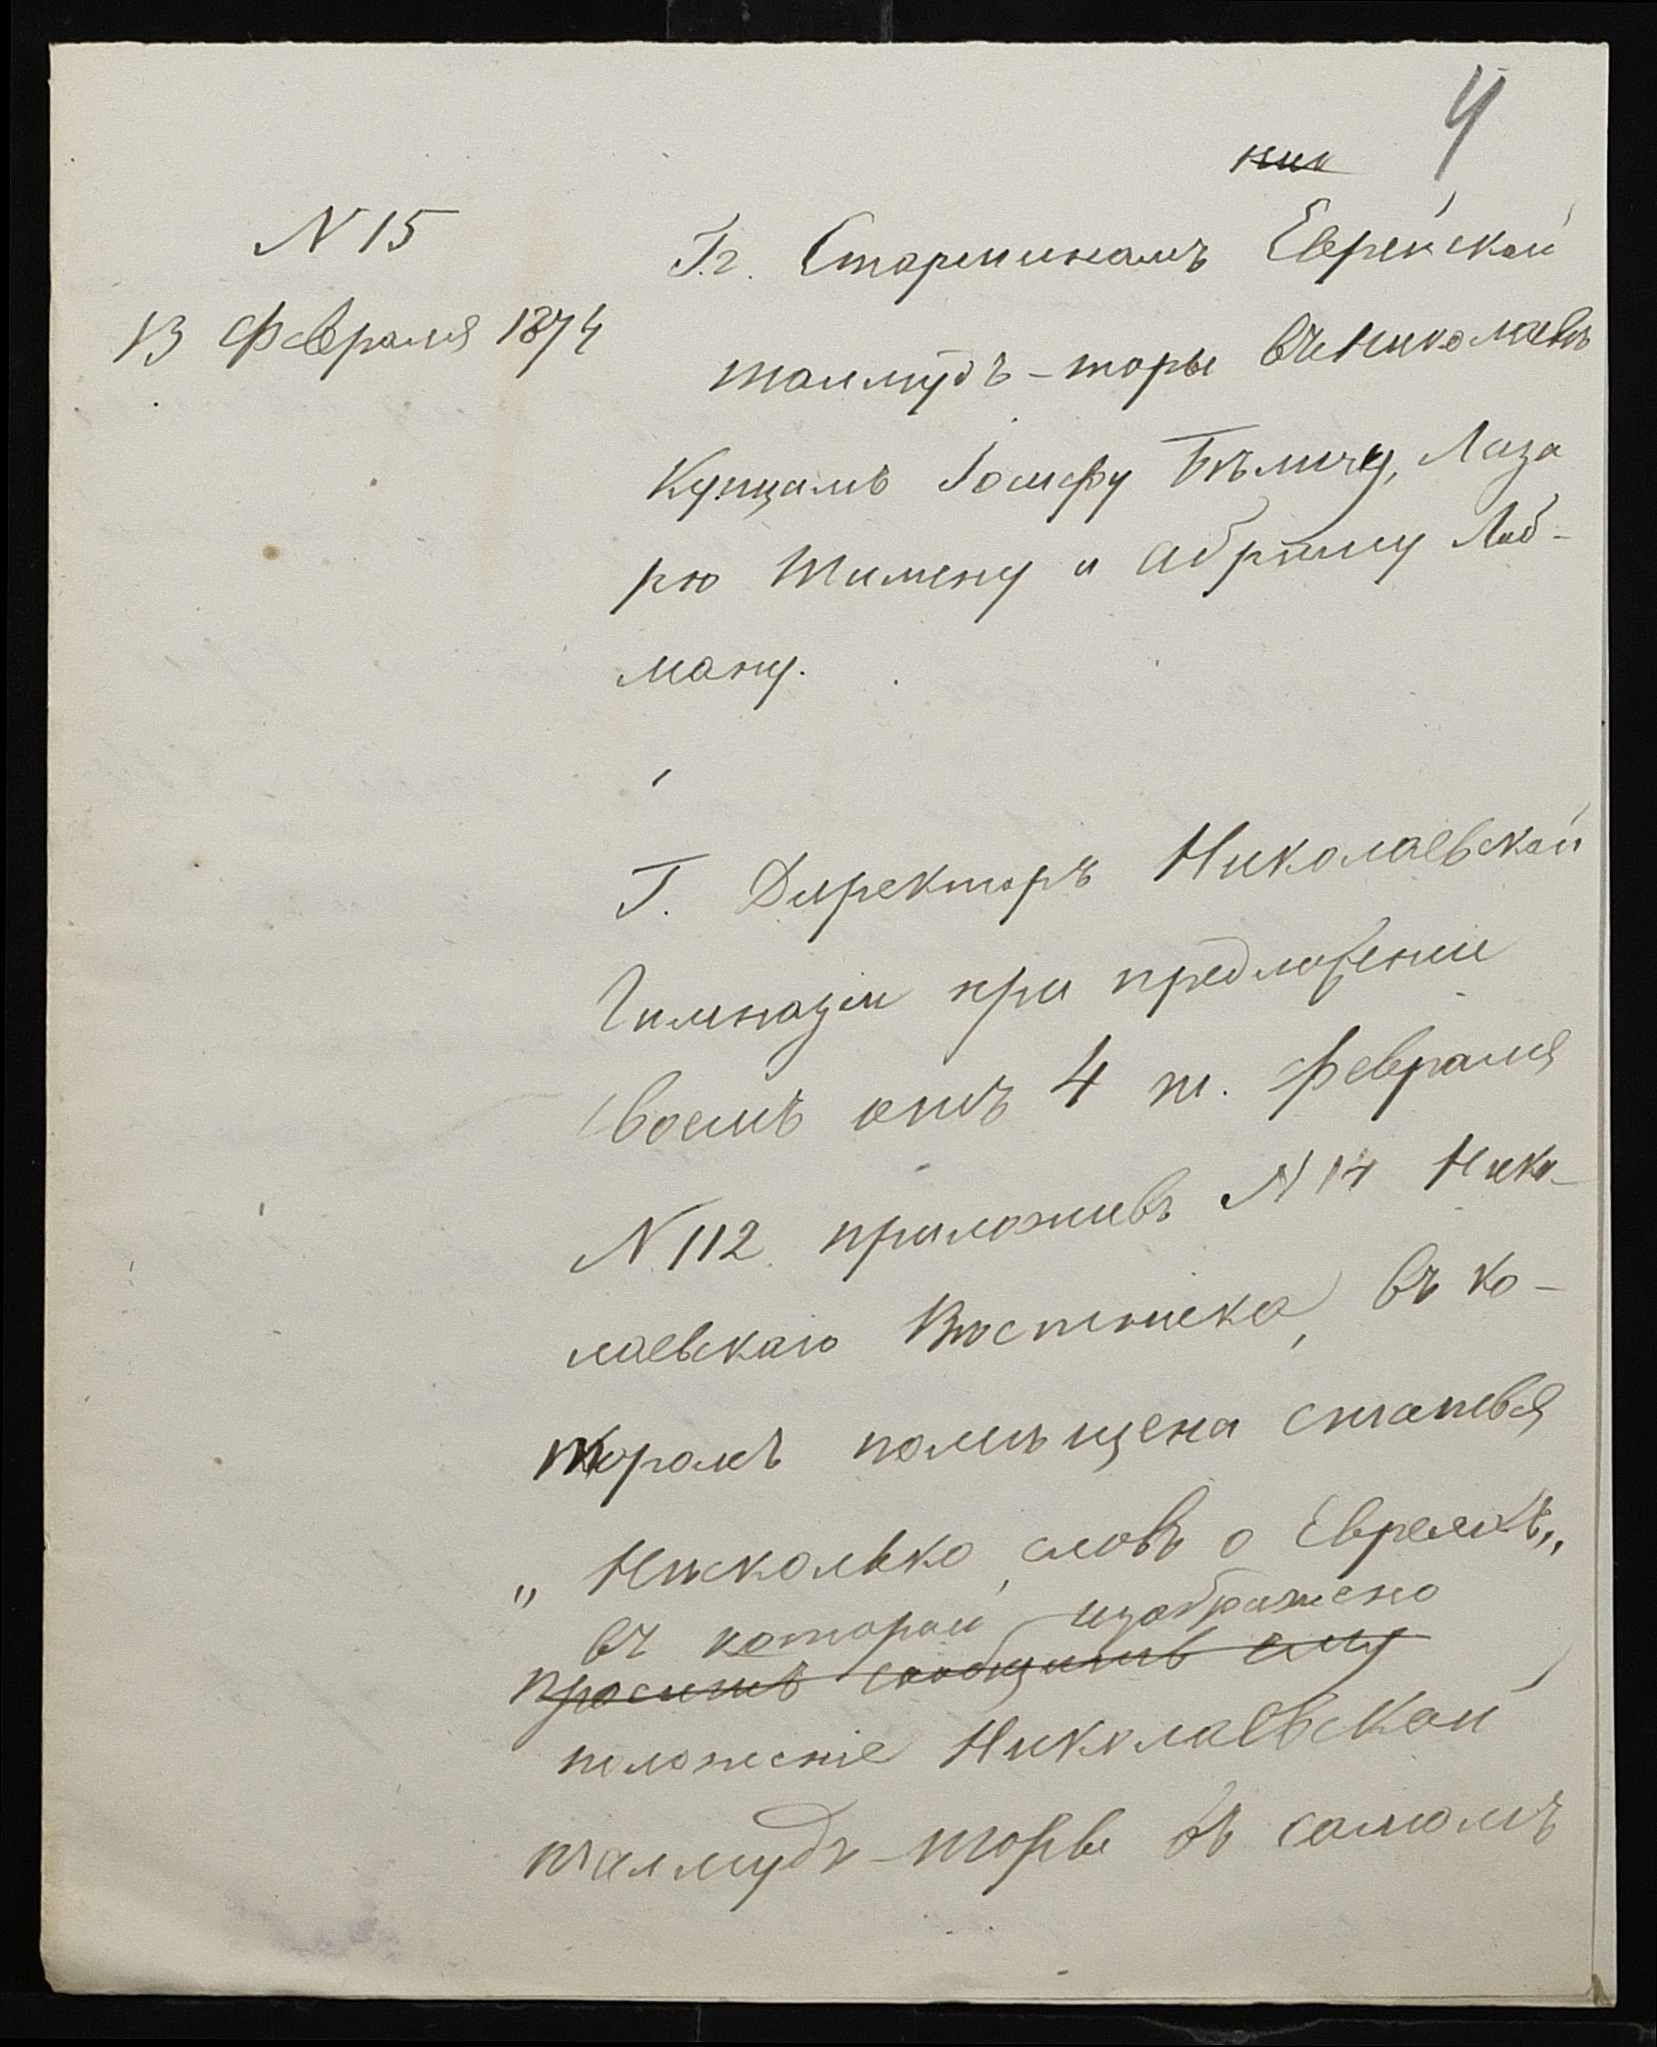 4
ник
N 15
13 Февраля 1874
Гг. Старшинамъ Еврейской
талмудъ-торы въ Николаевѣ
Купцамъ Іосифу Бѣличу, Лаза
рю Тимену и Абраму Лаб-
ману.
Г. Директоръ Николаевской
Гимназіи при предложеніи
своемъ отъ 4 т. Февраля
N 112 приложивъ N 14 Нико-
лаевскаго Вѣстника, въ ко-
торомъ помѣщена статья
„Нѣсколько словъ о Евреяхъ„
въ которой изображено
проситъ сообщить ему
положеніе Николаевской
талмудъ-торы въ самомъ